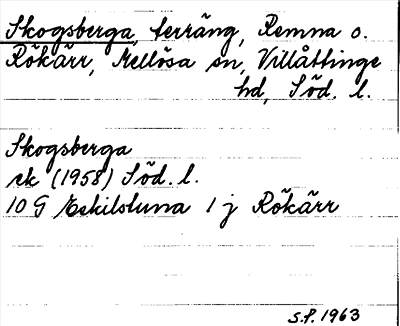 Skogsberga, terräng, Remna o.
Rökärr, Mellösa sn, Villåttinge
hd, Söd. l.
Skogsberga
ek (1958) Söd. l.
10 G Eskilstuna 1 j Rökärr
S.P. 1963